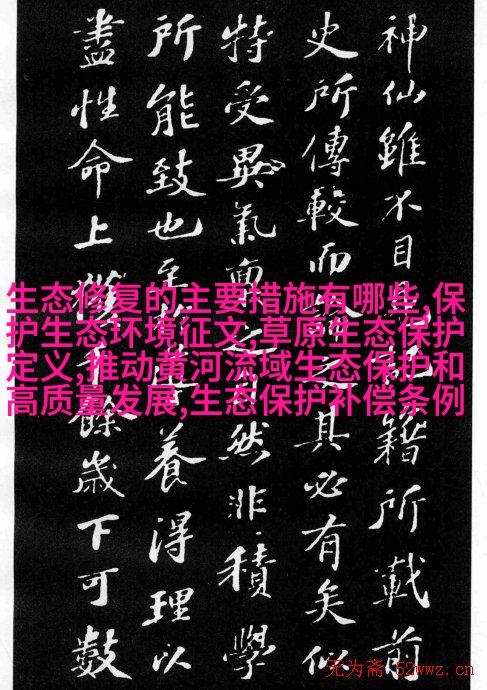 神仙雖不目見記籍所載前
史所傳較而論之其必有矣似
特受異氣稟之自然非積學
所能致也至養得理以
盡性命上獲餘歲下可數
生态修复的主要措施有哪些,保
护生态环境征文,草原生态保护
定义,推动黄河流域生态保护和
高质量发展,生态保护补偿条例
无为斋 52wwz.cn